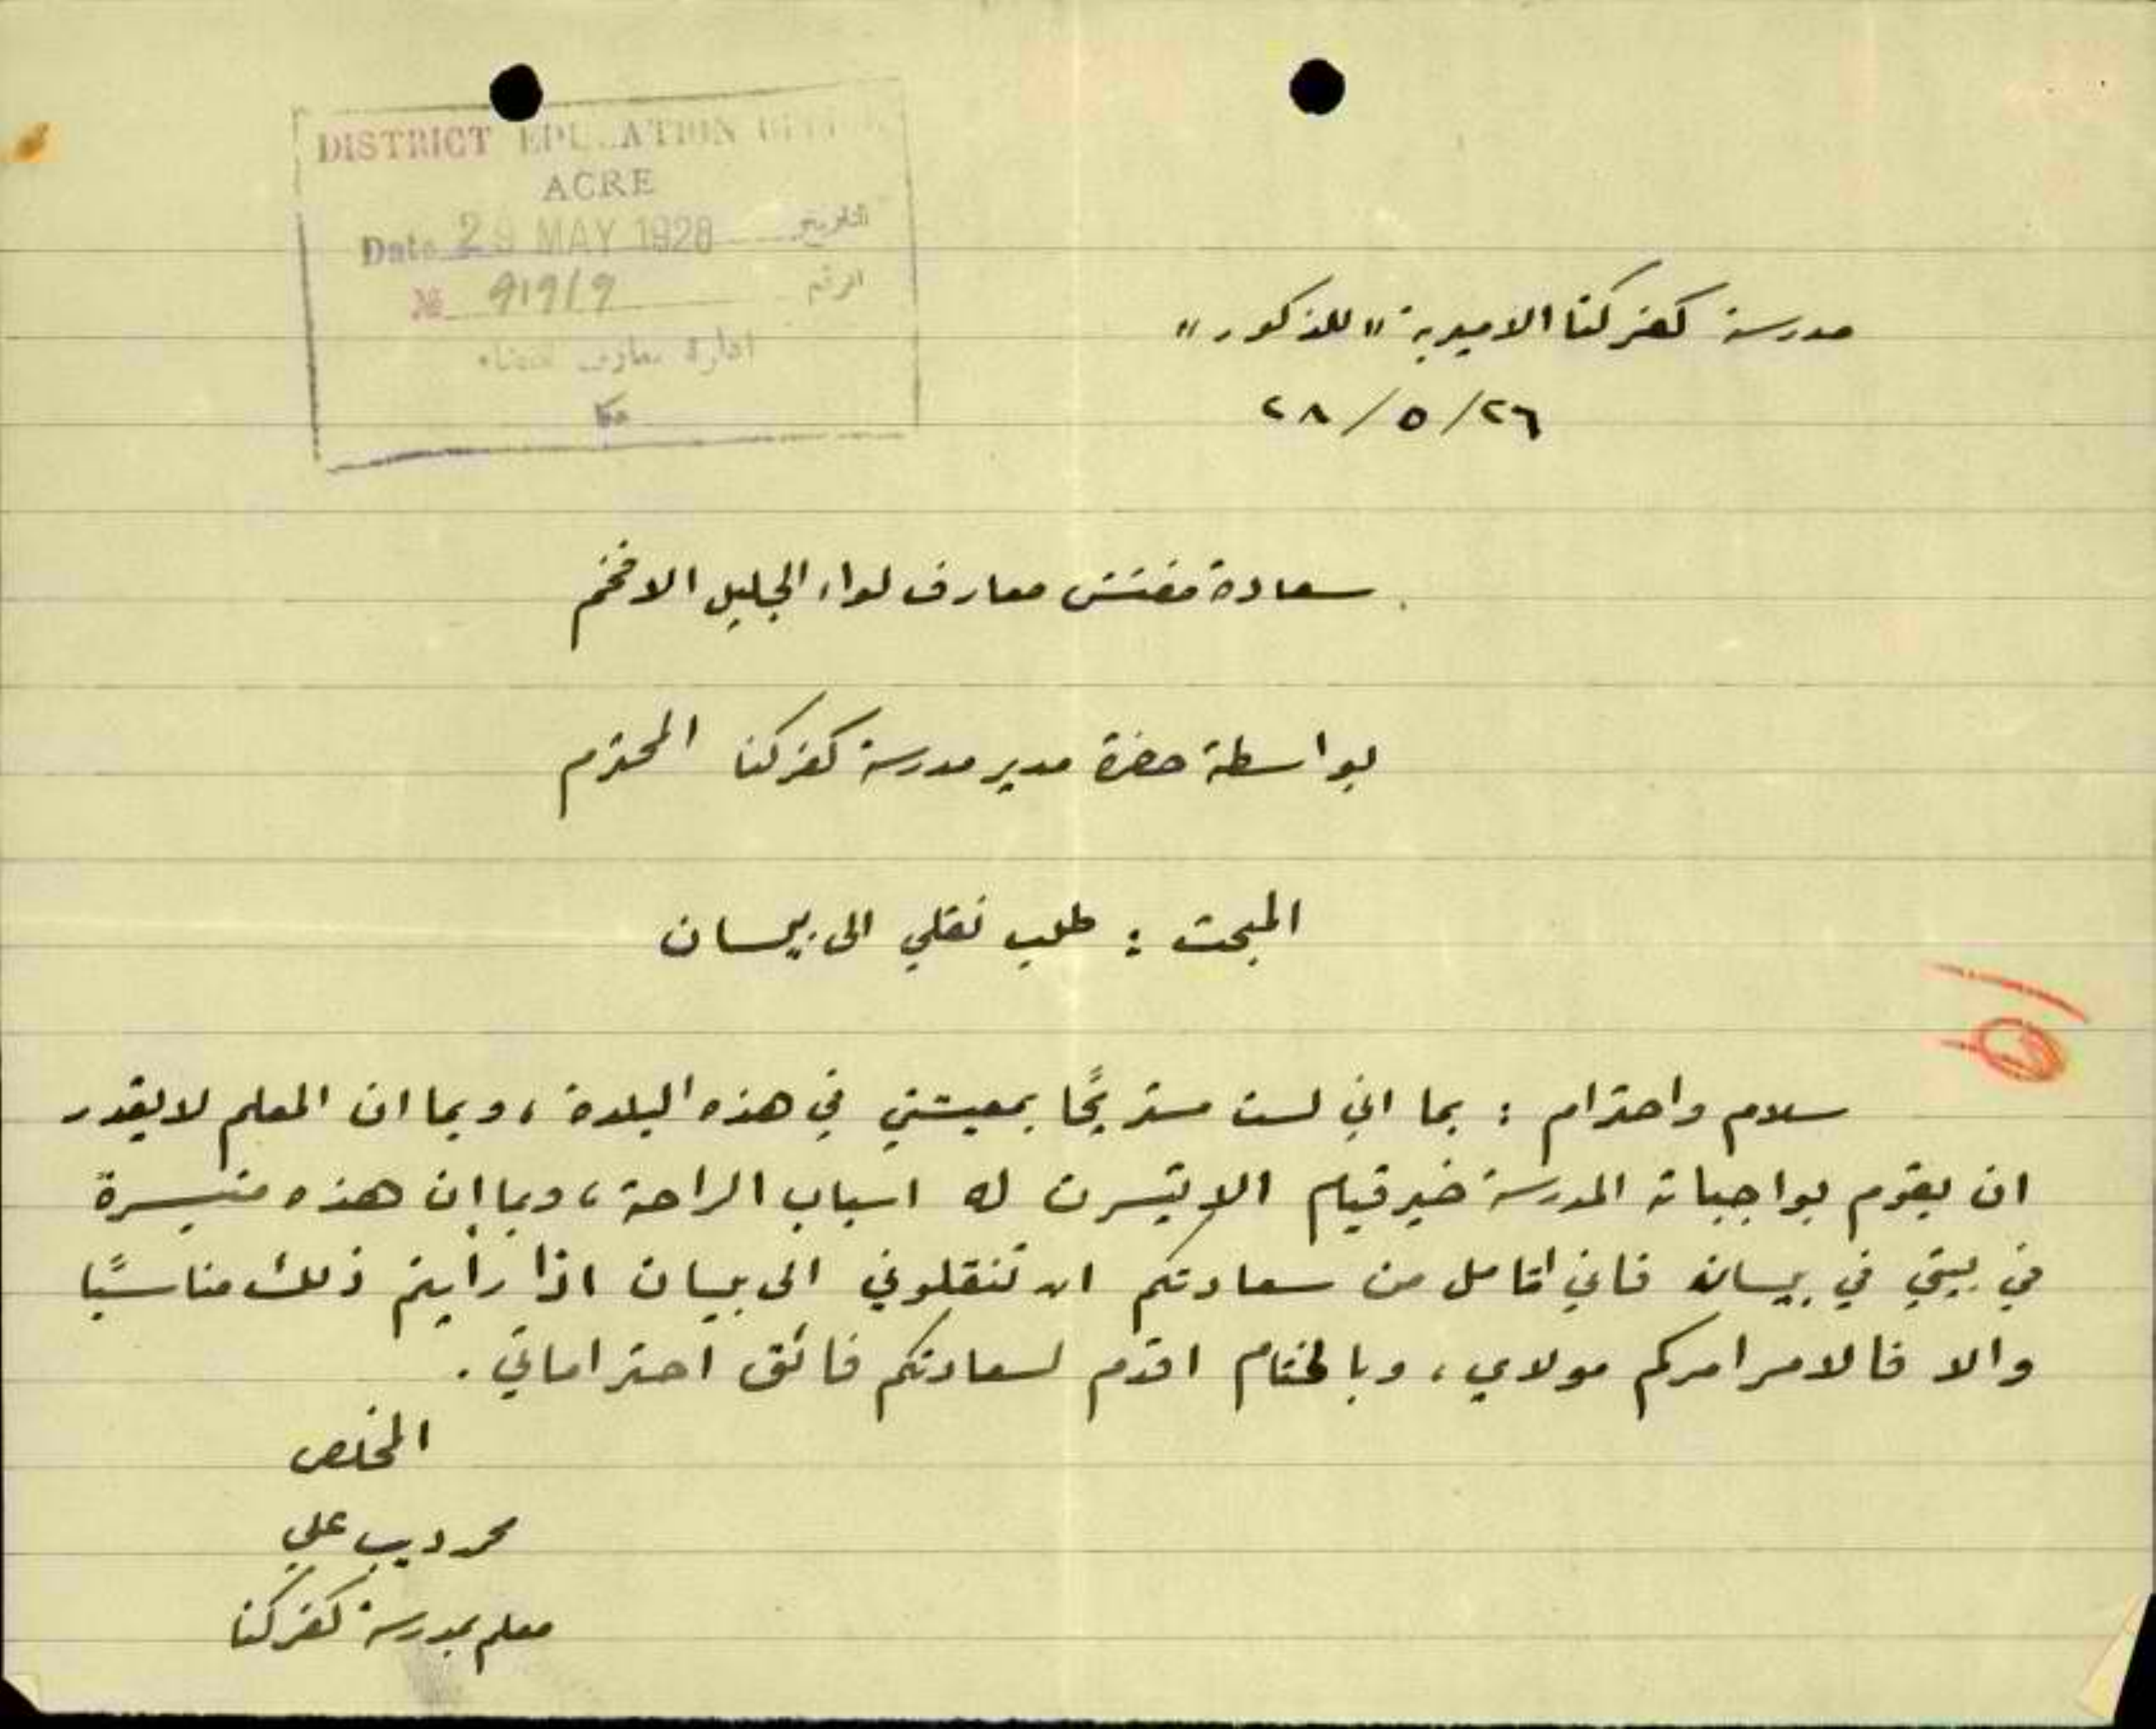 DISTRICT EDUCATION OFFICE
ACRE
Date 29 MAY 1928 التاريخ
№ 919/9 الرقم
ادارة معارف قضاء
عكا
مدرسة كفركنا الاميرية "للذكور"
٢٨/٥/٢٦
سعادة مفتش معارف لواء الجليل الافخم
بواسطة حضرة مدير مدرسة كفركنا المحترم
المبحث : طلب نقلي الى بيسان
سلام واحترام : بما اني لست مستريحًا بمعيشتي في هذه البلدة ، وبما ان المعلم لا يقدر
ان يقوم بواجباته المدرسة خير قيام الا بتيسرت له اسباب الراحة ، وبما ان هذه متيسرة
في بيتي في بيسان فاني اتامل من سعادتكم ان تنقلوني الى بيسان اذا رأيتم ذلك مناسبًا
والا فالامر امركم مولاي ، وبالختام اقدم لسعادتكم فائق احتراماتي .
المخلص
محمد ديب علي
معلم بمدرسة كفركنا